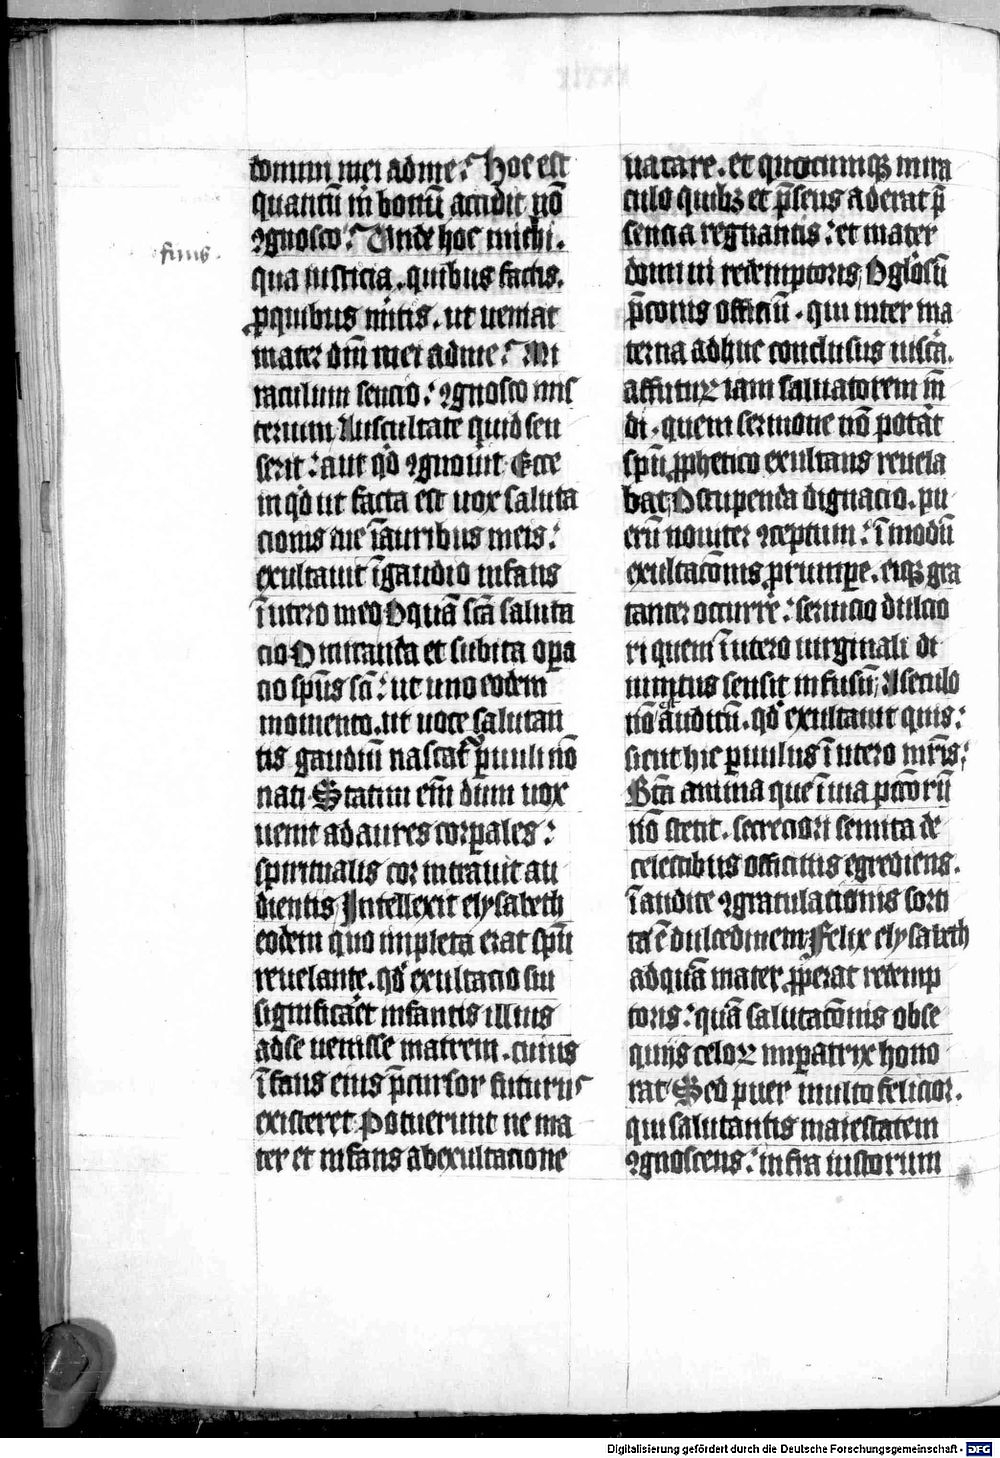 domini mei ad me? Hoc est
quantū m̄ bonū accidit nō
ꝯgnosco? Unde hoc michi.
finis.
qua iusticia. quibus factis.
ꝓ quibus m̄itis. ut ueniat
mater dn̄i mei ad me? Mi
raculum sencio: ꝯgnosco mis
terium, Auscultate quid sen
serit: aut qd̄ ꝯgnouit. Ecce
inqd̄ ut facta est uox saluta
cionis tue ī auribus meis:
exultauit ī gaudio infans
ī utero meo O quā scā saluta
cio O miranda et subita oꝑa
cio spūs sc̄i: ut uno eodem
momento. ut uoce salutan
tis gaudiū nascat᷑ ꝑuuli nō
nati. Statim em̄ dum uox
uenit ad aures corꝑales:
spiritualis cor intrauit au
dientis, Intellexit elysabeth
eodem quo impleta erat spū
reuelante. qd̄ exultacio sui
significaret infantis illius
ad se uenisse matrem. cuius
īfans eius p̄cursor futurus
existeret Potuerunt ne ma
ter et infans ab exultacione
uacare. et quocumqꝫ mira
culo quibꝫ et p̄sens aderat p̄
sencia regnantis: et mater
domini redemptoris, O gl̄osū
p̄conis officiū. qui inter ma
terna adhuc conclusus uisc̄a.
affuturꝝ iam saluatorem mū
di. quem sermone nō poterat
spū ꝓphetico exultans reuela
bat, O stupenda dignacio. pu
erū nouiter ꝯceptum: ī modū
exultac̄onis ꝓrumpe. eiqꝫ gra
tanter occurre᷑: seruicio dulcio
ri quem ī utero uirginali di
uinitus sensit infusū, A seculo
nō est auditū. qd̄ exultauit quis:
sicut hic ꝑuulus ī utero mr̄is:
Bt̄a anima que ī uia pct̄orū
nō stetit. secreciori semita de
celestibus officinis egrediens.
ī audite ꝯgratulacionis sorti
ta ē dulcedinem, Felix elysabeth
ad quā mater ꝓꝑerat redemp
toris: quā salutac̄onis obse
quijs celoꝝ imꝑatrix hono
rat. Sed puer multo felicior.
qui salutantis maiestatem
ꝯgnoscens: infra iustorum
Digitalisierung gefördert durch die Deutsche Forschungsgemeinschaft - DFG